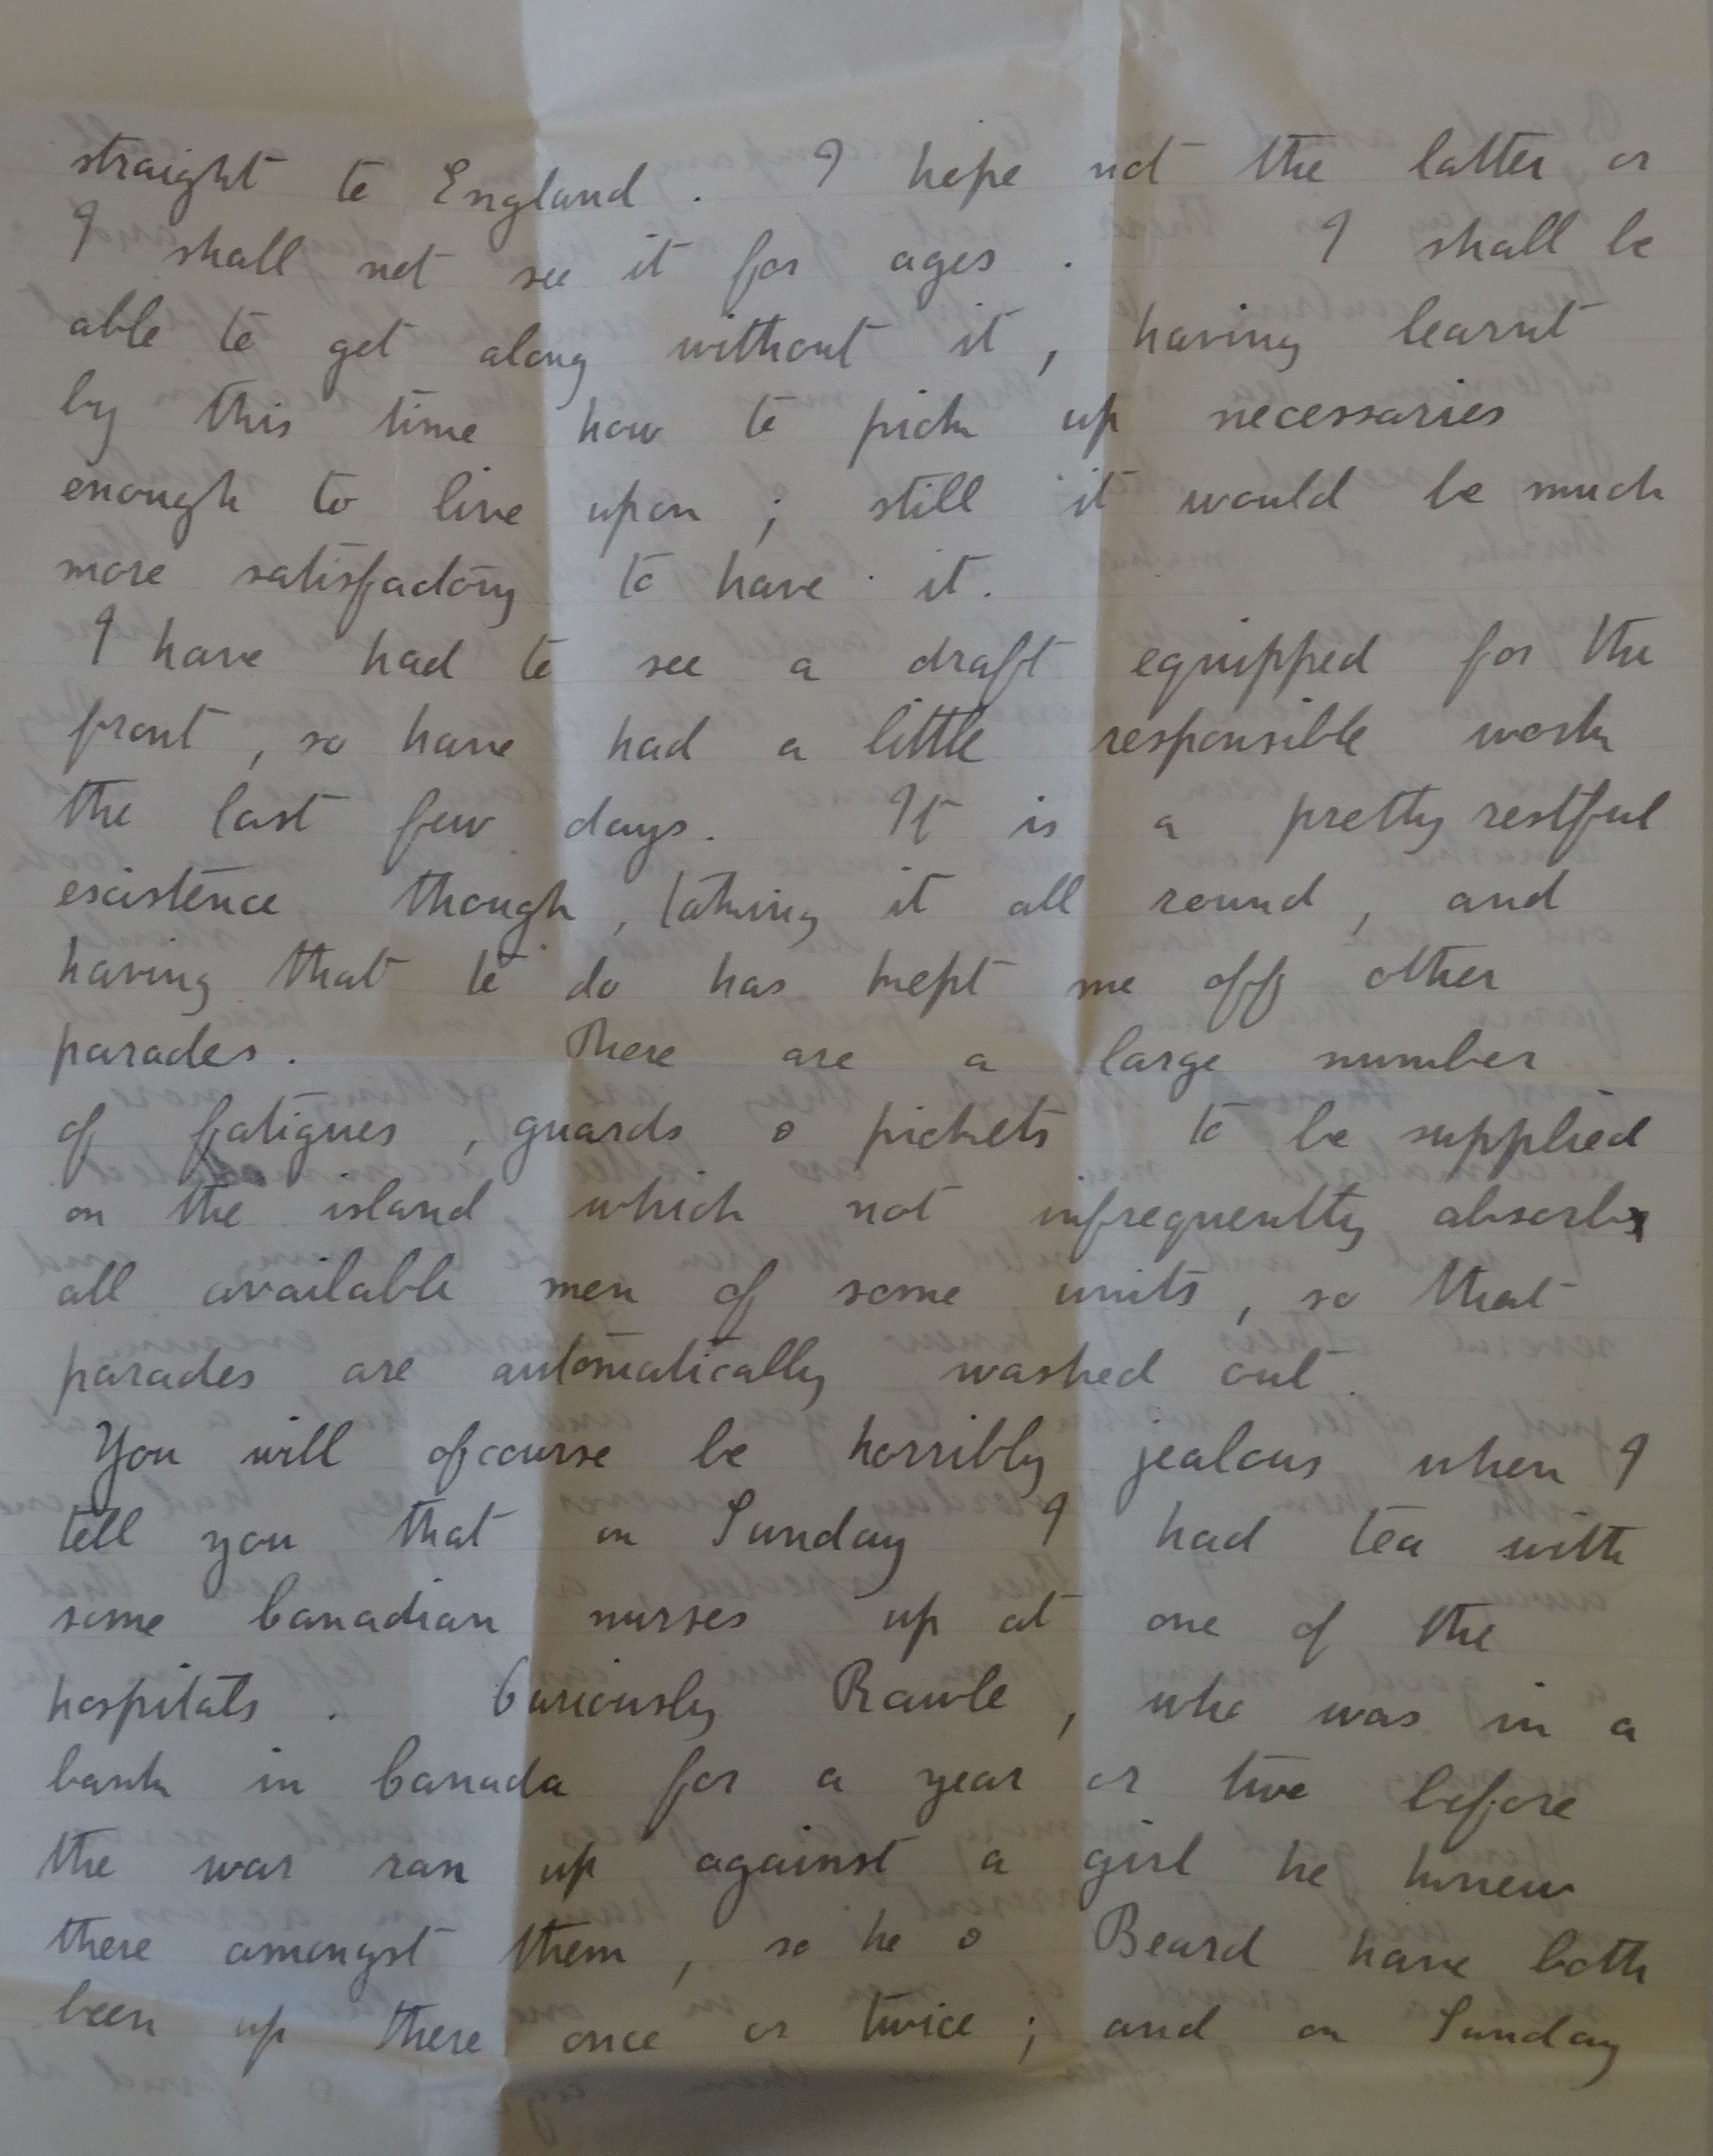 straight to England. I hope not the latter or
I shall not see it for ages. I shall be
able to get along without it, having learnt
by this time how to pick up necessaries
enough to live upon; still it would be much
more satisfactory to have it.
I have had to see a draft equipped for the
front, so have had a little responsible work
the last few days. It is a pretty restful
existence though, taking it all round, and
having that to do has kept me off other
parades. There are a large number
of fatigues, guards & pickets to be supplied
on the island which not infrequently absorbs
all available men of some units, so that
parades are automatically washed out.
You will ofcourse be horribly jealous when I
tell you that on Sunday I had tea with
some Canadian nurses up at one of the
hospitals. Curiously Rawle, who was in a
bank in Canada for a year or two before
the war ran up against a girl he knew
there amongst them, so he & Beard have both
been up there once or twice; and on Sunday